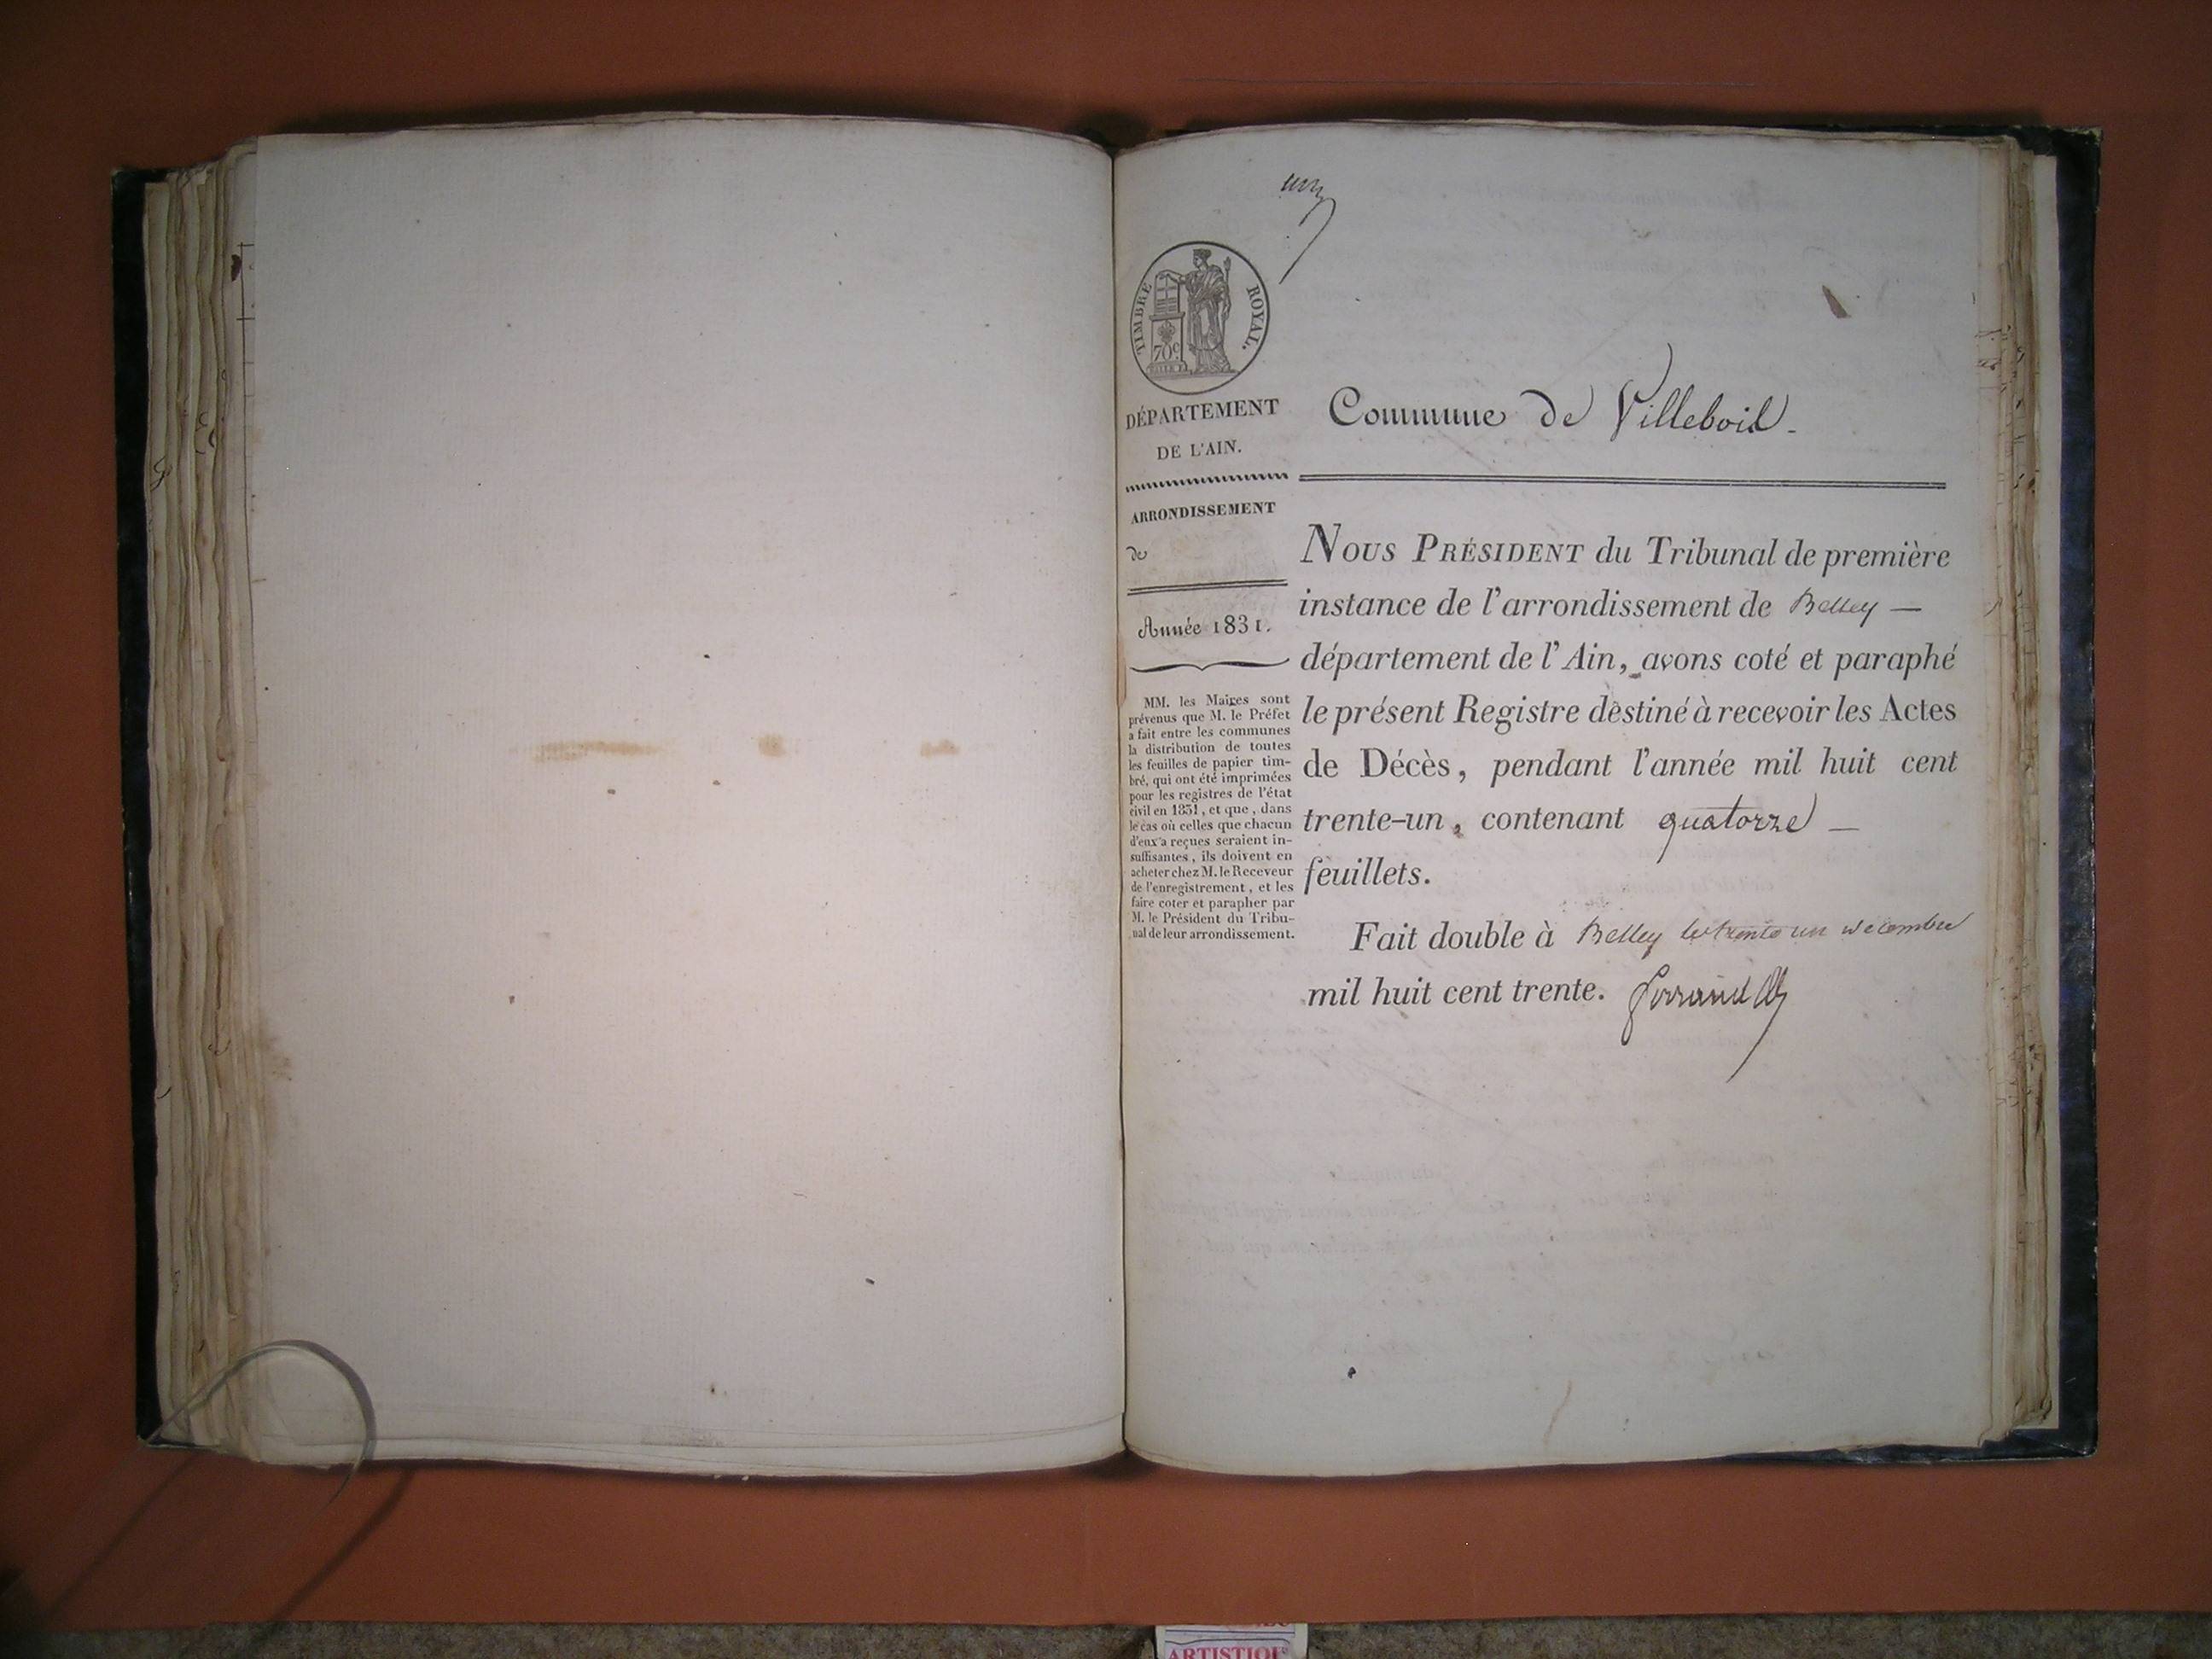 un
TIMBRE ROYAL.
70c
DÉPARTEMENT
DE L'AIN.
ARRONDISSEMENT
de
Année 1831.
MM. les Maires sont
prévenus que M. le Préfet
a fait entre les communes
la distribution de toutes
les feuilles de papier tim-
bré, qui ont été imprimées
pour les registres de l'état
civil en 1831, et que, dans
le cas où celles que chacun
d'eux a reçues seraient in-
suffisantes, ils doivent en
acheter chez M. le Receveur
de l'enregistrement, et les
faire coter et parapher par
M. le Président du Tribu-
nal de leur arrondissement.
Commune de Villebois.
NOUS PRÉSIDENT du Tribunal de première
instance de l'arrondissement de Belley —
département de l'Ain, avons coté et paraphé
le présent Registre destiné à recevoir les Actes
de Décès, pendant l'année mil huit cent
trente-un, contenant quatorze —
feuillets.
Fait double à Belley le trente un décembre
mil huit cent trente.
ARTISTIQUE